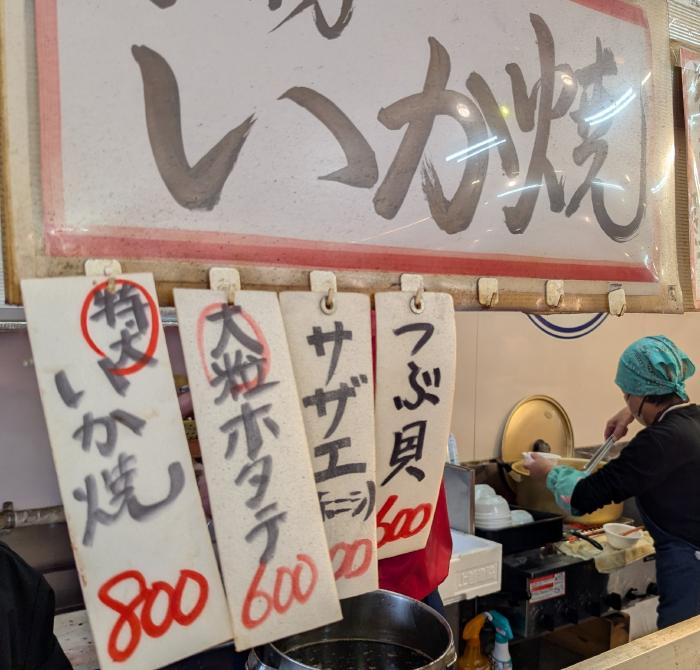 いか焼
特大
いか焼
800
大粒
ホタテ
600
サザエ
つぶ貝